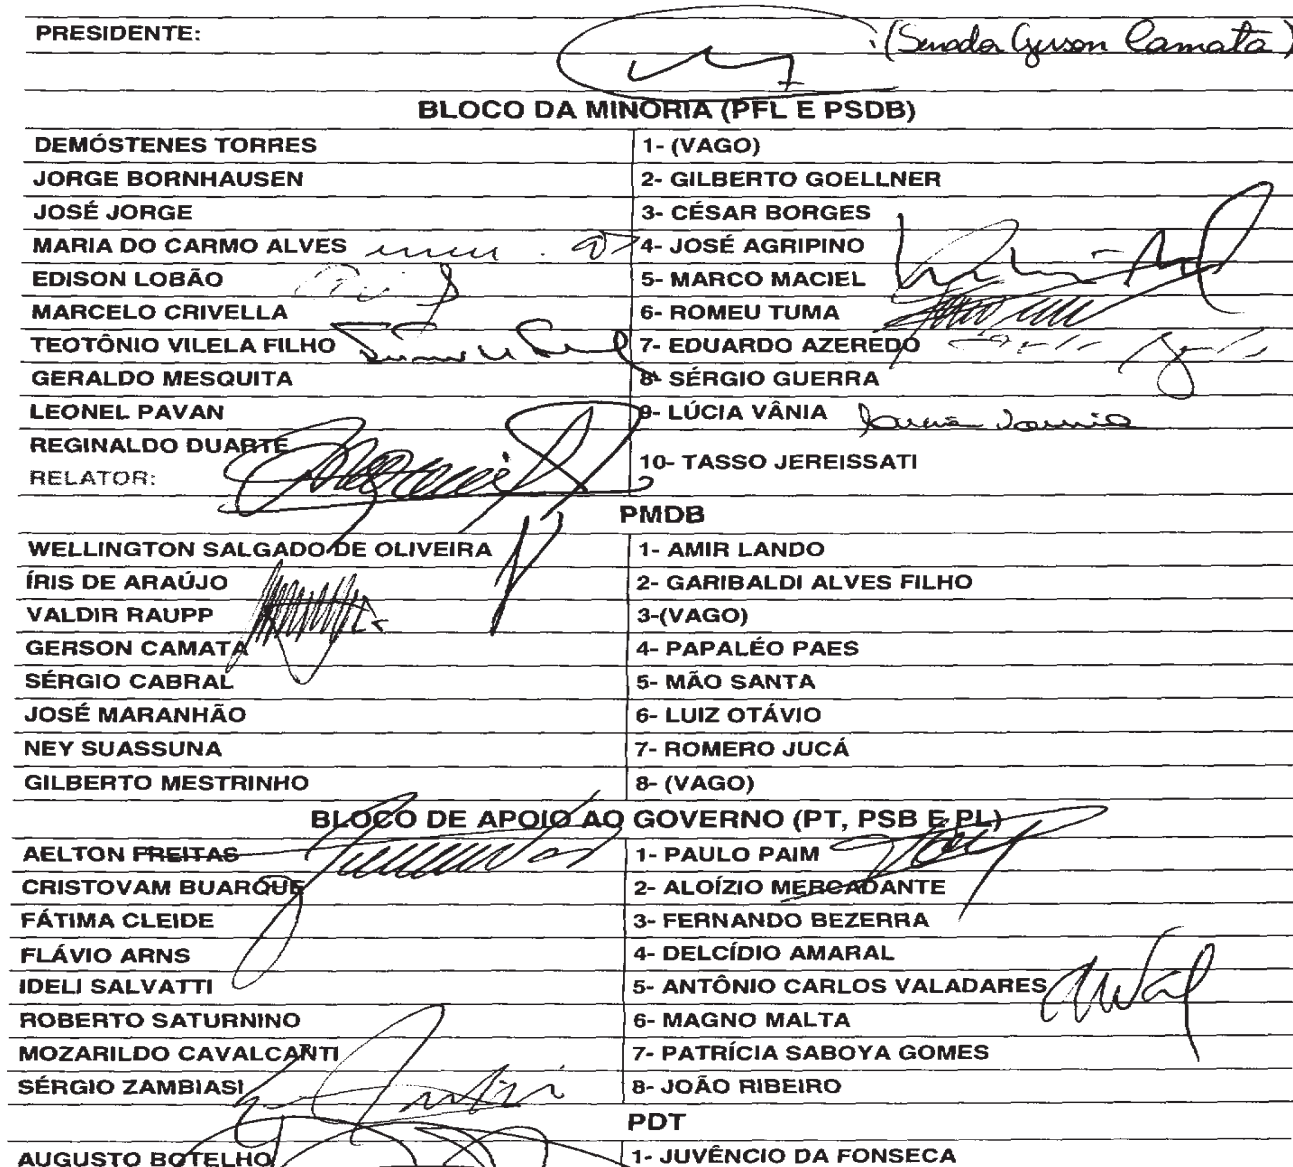 PRESIDENTE: (Senador Gerson Camata)
BLOCO DA MINORIA (PFL E PSDB)
DEMÓSTENES TORRES 1- (VAGO)
JORGE BORNHAUSEN 2- GILBERTO GOELLNER
JOSÉ JORGE 3- CÉSAR BORGES
MARIA DO CARMO ALVES 4- JOSÉ AGRIPINO
EDISON LOBÃO 5- MARCO MACIEL
MARCELO CRIVELLA 6- ROMEU TUMA
TEOTÔNIO VILELA FILHO 7- EDUARDO AZEREDO
GERALDO MESQUITA 8- SÉRGIO GUERRA
LEONEL PAVAN 9- LÚCIA VÂNIA Lúcia Vânia
REGINALDO DUARTE
RELATOR: 10- TASSO JEREISSATI
PMDB
WELLINGTON SALGADO DE OLIVEIRA 1- AMIR LANDO
ÍRIS DE ARAÚJO 2- GARIBALDI ALVES FILHO
VALDIR RAUPP 3-(VAGO)
GERSON CAMATA 4- PAPALÉO PAES
SÉRGIO CABRAL 5- MÃO SANTA
JOSÉ MARANHÃO 6- LUIZ OTÁVIO
NEY SUASSUNA 7- ROMERO JUCÁ
GILBERTO MESTRINHO 8- (VAGO)
BLOCO DE APOIO AO GOVERNO (PT, PSB E PL)
AELTON FREITAS 1- PAULO PAIM
CRISTOVAM BUARQUE 2- ALOÍZIO MERCADANTE
FÁTIMA CLEIDE 3- FERNANDO BEZERRA
FLÁVIO ARNS 4- DELCÍDIO AMARAL
IDELI SALVATTI 5- ANTÔNIO CARLOS VALADARES
ROBERTO SATURNINO 6- MAGNO MALTA
MOZARILDO CAVALCANTI 7- PATRÍCIA SABOYA GOMES
SÉRGIO ZAMBIASI 8- JOÃO RIBEIRO
PDT
AUGUSTO BOTELHO 1- JUVÊNCIO DA FONSECA